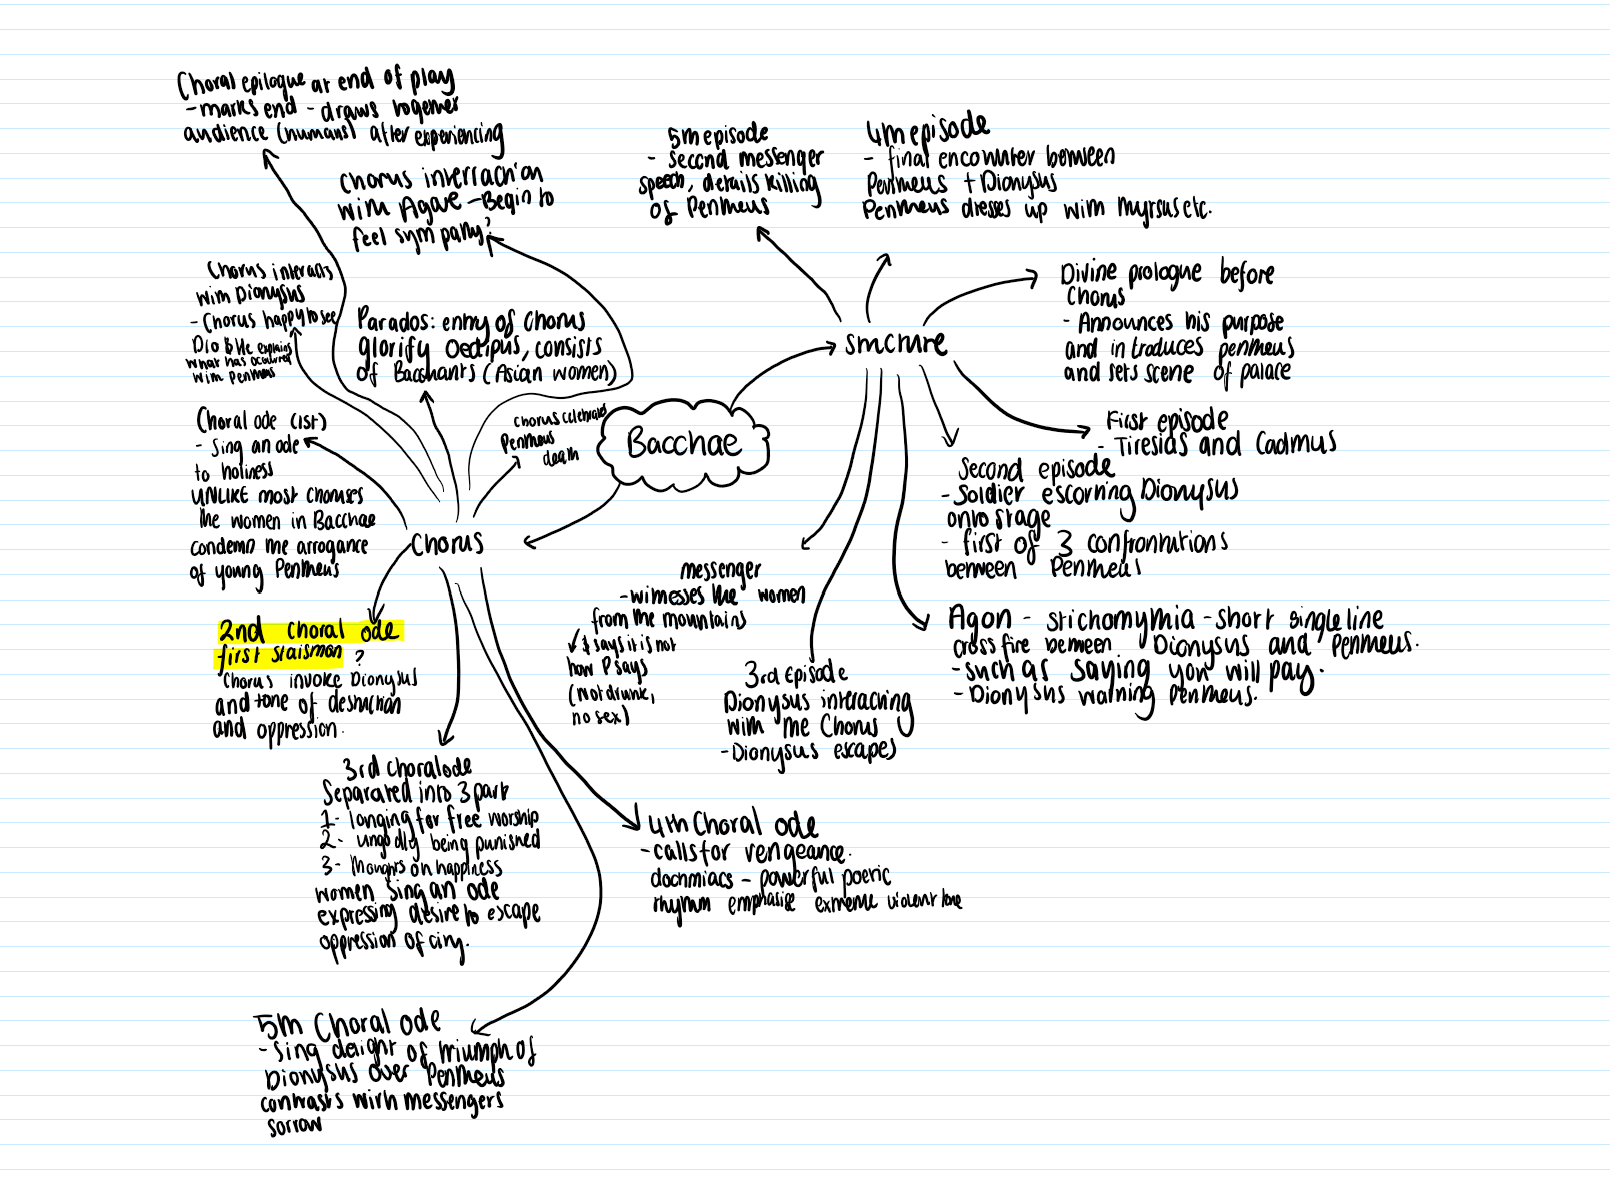 Choral epilogue at end of play
- marks end - draws together
audience (humans) after experiencing
Chorus interraction
with Agave - Begin to
feel sympathy?
Chorus interacts
with Dionysus
- Chorus happy to see
Dio & He explains
what has occurred
with Pentheus
Parados: entry of Chorus
glorify Oedipus, consists
of Bacchants (Asian women)
Choral ode (1st)
- Sing an ode
to holiness
UNLIKE most choruses
the women in Bacchae
condemn the arrogance
of young Pentheus
chorus celebrates
Pentheus
death
Bacchae
Chorus
2nd choral ode
first staismon ?
Chorus invoke Dionysus
and tone of destruction
and oppression.
3rd Choral ode
Separated into 3 part
1- longing for free worship
2- ungodly being punished
3- thoughts on happiness
women sing an ode
expressing desire to escape
oppression of city.
4th Choral ode
- calls for vengeance.
dochmiacs - powerful poetic
rhythm emphasise extreme violent tone
5th Choral ode
- Sing delight of triumph of
Dionysus over Pentheus
contrasts with messengers
sorrow
structure
5th episode
- second messenger
speech, details killing
of Pentheus
4th episode
- final encounter between
Pentheus + Dionysus
Pentheus dresses up with thyrsus etc.
Divine prologue before
Chorus
- Announces his purpose
and introduces pentheus
and sets scene of palace
First episode
- Tiresias and Cadmus
Second episode
- Soldier escorting Dionysus
onto stage
- first of 3 confrontations
between Pentheus
Agon - stichomythia - short single line
cross fire between Dionysus and Pentheus.
- such as saying you will pay.
- Dionysus warning Pentheus.
messenger
- witnesses the women
from the mountains
& says it is not
how P says
(not drunk,
no sex)
3rd Episode
Dionysus interacting
with the Chorus
- Dionysus escapes